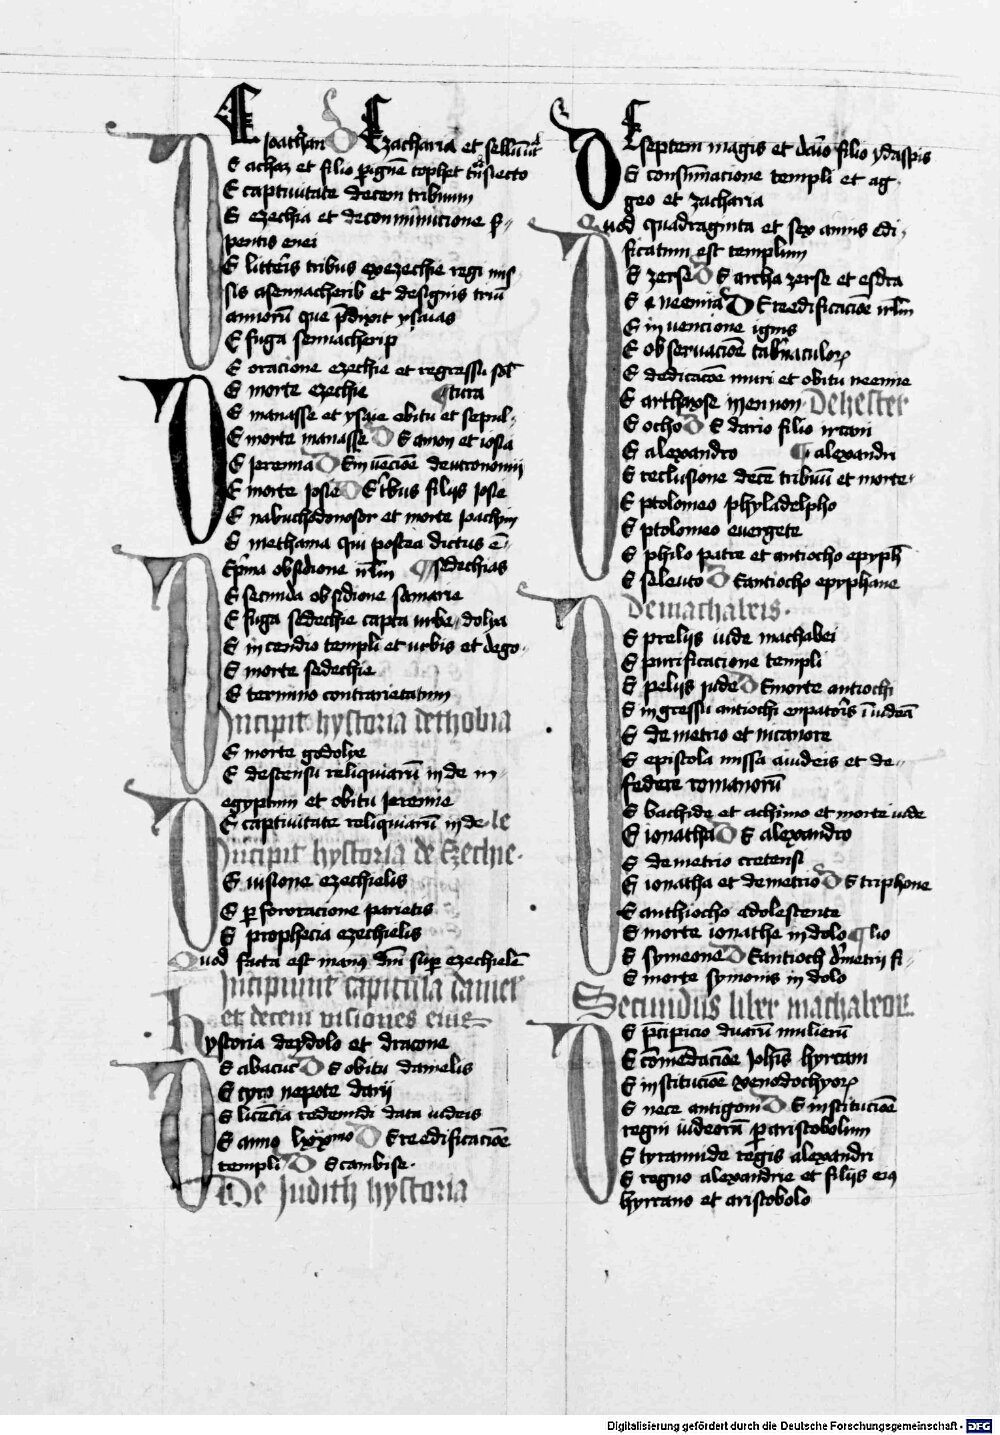 E Joathan D Ezacharia et sellum
E achaz et filio per ignem tophet transiecto
E captivitate decem tribuum
E ezechia et decomminucione ser-
pentis enei
E litteris tribus exezechie regi mis
sis asennacherib et designis trium
annorum que predixit ysaias
E fuga sennacherip
E oracione ezechie et regressu sol
E morte ezechie ¶tura
E manasse et ysaie obitu et sepul-
E morte manasse D E amon et iosia
E Jeremia D E invencione deutronomii
E morte Josie D E tribus filiis Josie
E nabuchodonosor et morte Joachym
E methania qui postea dictus e-
E prima obsidione irlm ¶sedechias
E secunda obsidione samarie
E fuga sedechie capta urbe dolya
E incendio templi et urbis et dego-
E morte sedechie
E termino contrarietatum
Incipit hystoria dethobia
E morte godolye
E descensu reliquiarum inde in-
egyptum et obitu Jeremie
E captivitate reliquiarum inde le
Incipit hystoria de Ezechie
E visione ezechielis
E perfororacione parietis
E prophecia ezechielis
Quod facta est manus dni super ezechielem
Incipiunt capitula daniel
et decem visiones eius
hystoria deydolo et dracone
E abacuc D E obitu danielis
E cyro nepote darii
E licencia redeundi data iudeis
E anno lxxmo D E reedificacione
templi D E cambise
De Judith hystoria
E septem magis et dario filio ydaspis
E consummacione templi et ag-
geo et zacharia
Quod quadraginta et sex annis edi-
ficatum est templum
E zerse D E archa zerse et esdra
E neemia D E reedificacione irlm
E invencione ignis
E observacione tabernaculorum
E dedicacione muri et obitu neemie
E arthaxose mennon Dehester
E ocho D E dario filio ircani
E alexandro ¶ alexandri
E reclusione decem tribuum et morte
E ptolomeo phyladelpho
E ptolomeo evergete
E philo patre et antiocho epyph
E sileuco D E antiocho epyphane
De machabeis
E preliis iude machabei
E purificacione templi
E peliis Jude D E morte antiochi
E ingressu antiochi eupatoris in iudea
E demetrio et nicanore
E epistola missa aiudeis et de-
federe romanorum
E bachide et achimo et morte iude
E ionatha D E alexandro
E demetrio cretensi
E ionatha et demetrio D E triphone
E anthiocho adolescente
E morte ionathe indolo ¶lio
E symeone D E antioch demetrii fi-
E morte symonis in dolo
Secundus liber machabeorum
E precipicio duarum mulierum
E comendacione Johis hyrcani
E institucione xenodochyorum
E nece antigoni D E institucione
regni iudeorum per aristobolum
E tyrannide regis alexandri
E regno alexandrie et filiis eius
hyrcano et aristobolo
Digitalisierung gefördert durch die Deutsche Forschungsgemeinschaft - DFG